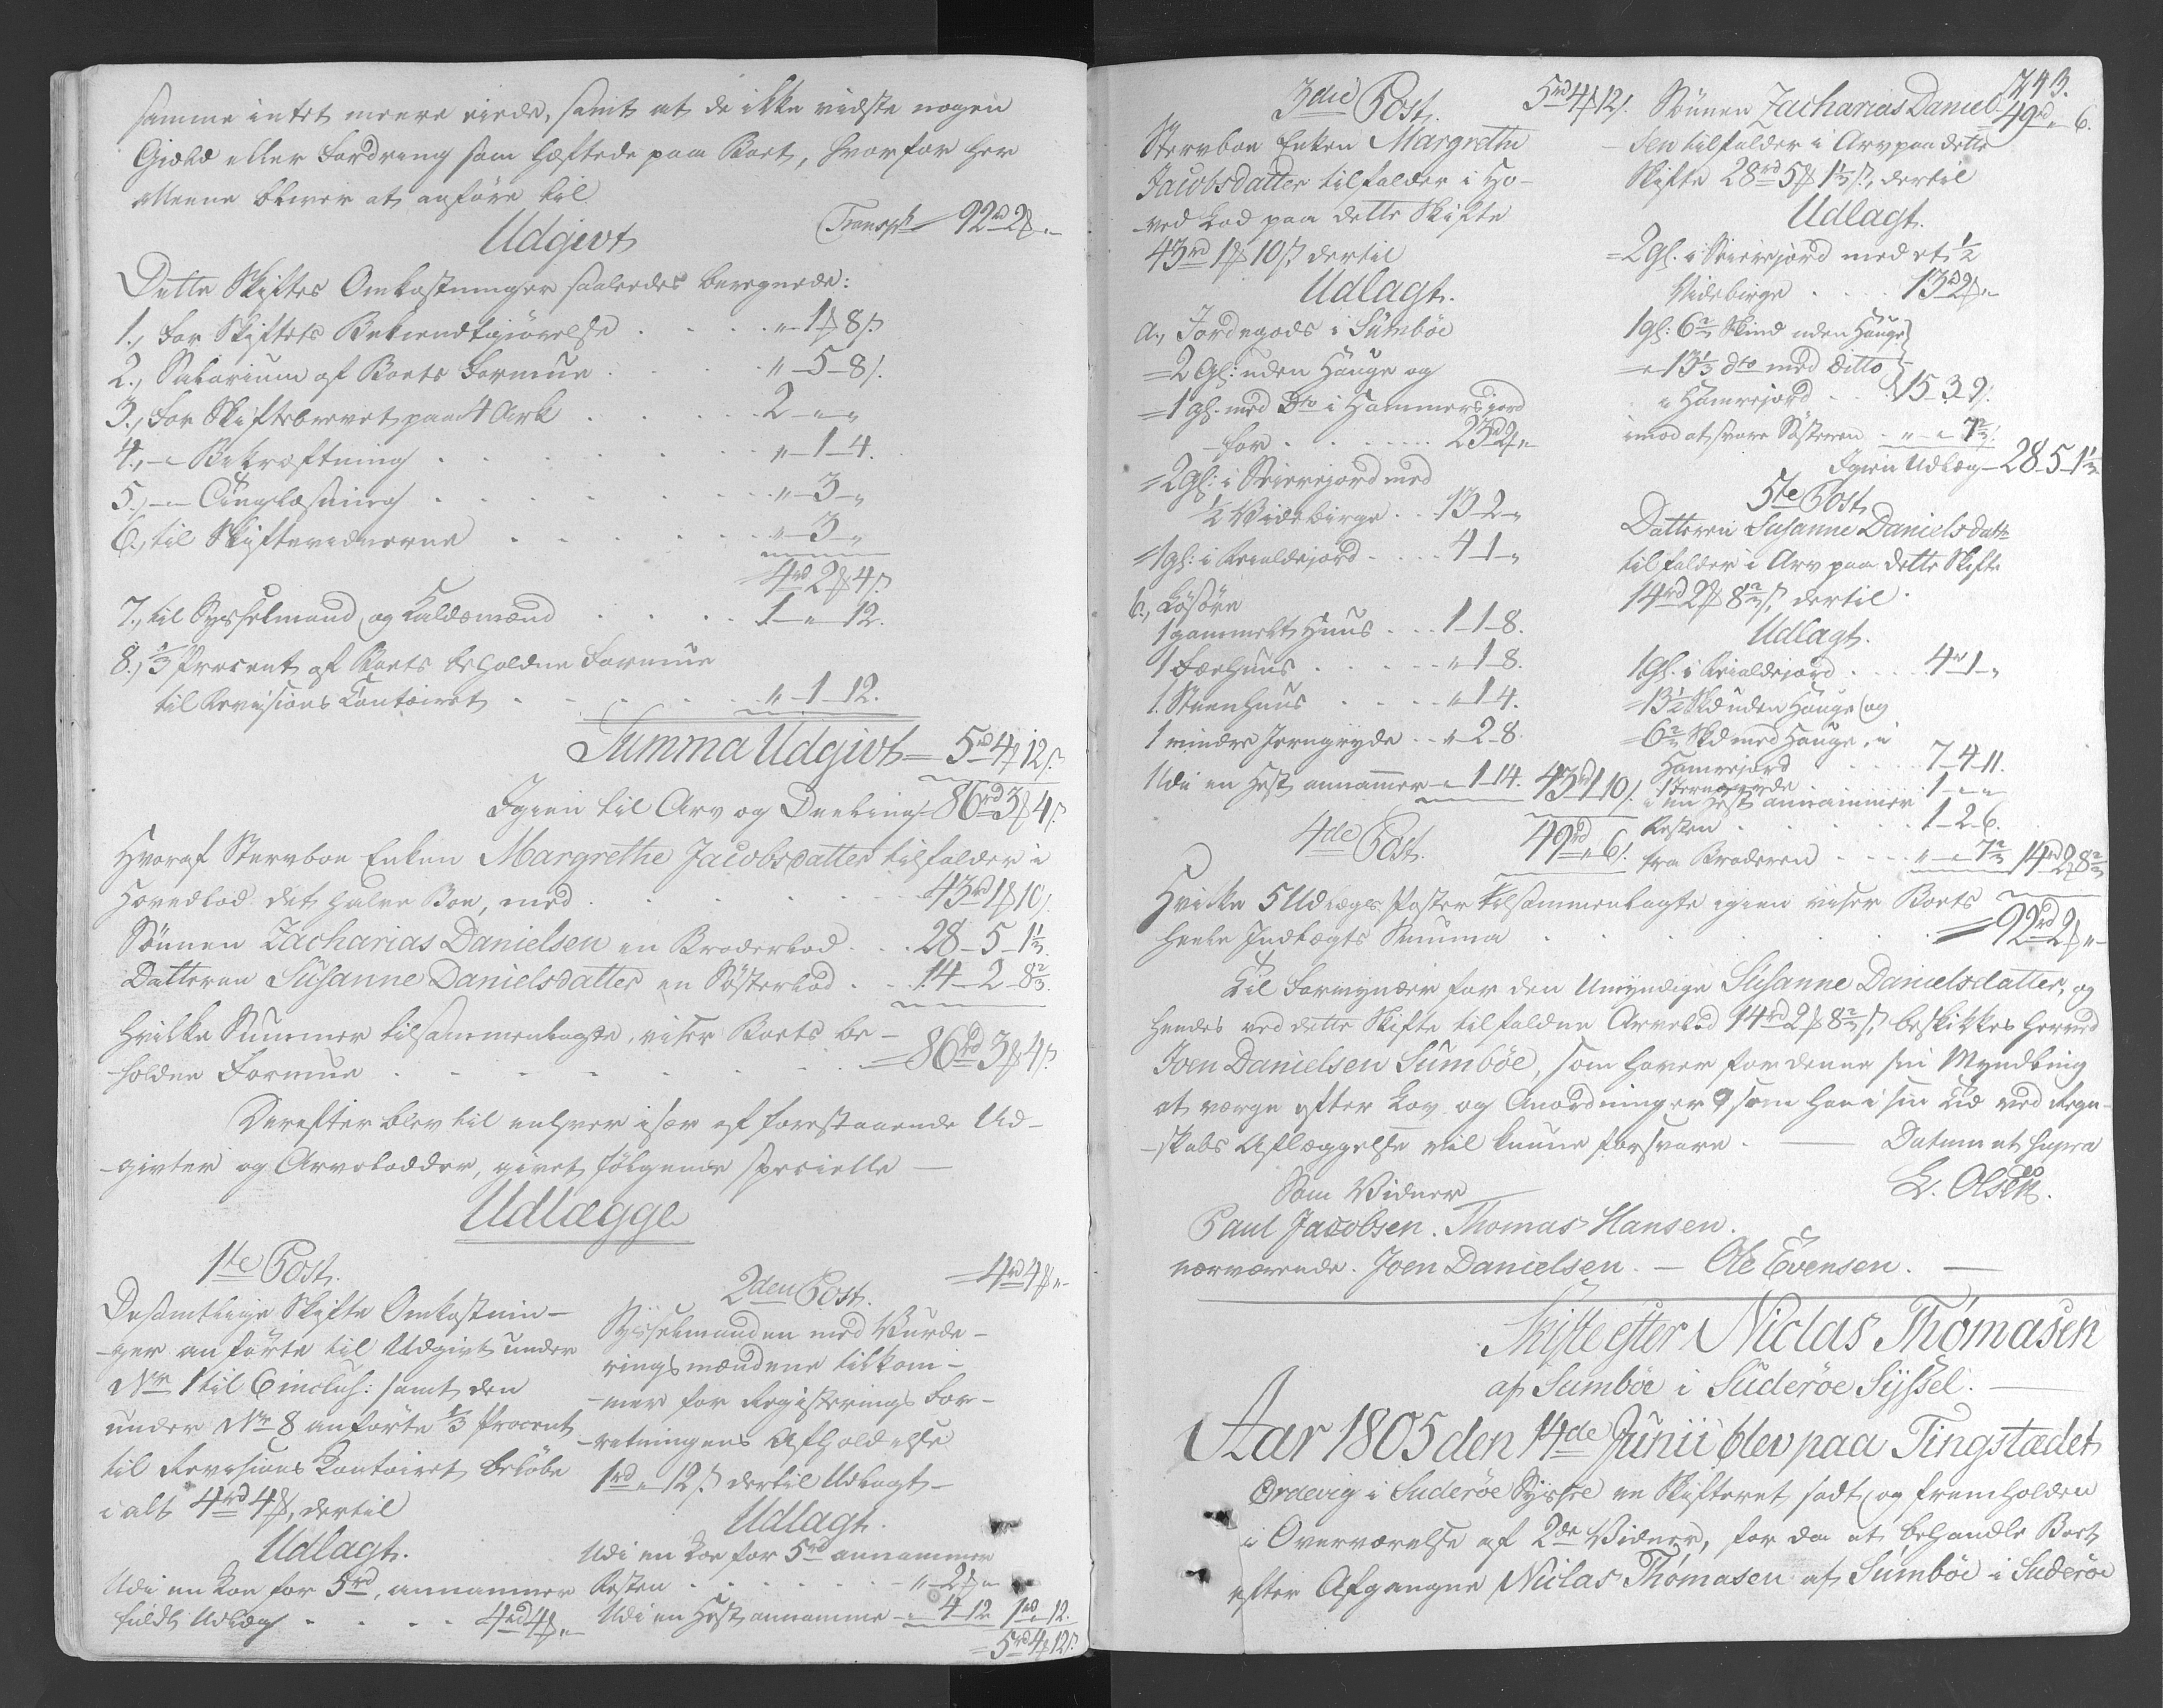 samme intet meere eiede, samt at de ikke vidste nogen
Gield eller Fordring som heftede paa Boet, hvorfor her
alleene bliver at anføre til
Transpt 92rd 2ß „
Udgivt
Dette Skiftes Omkostninger saaledes beregnede:
1., For Skiftets Bekiendtgiørelse . . . „ 1ß 8s
2., Salarium af Boets Formue . . . „ 5 - 8s.
3., For Skiftebrevet paa 4 Ark . . . 2 - „ - „
4., - „ Bekræftning . . . „ 1 - 4.
5., - „ Tinglæsning . . . „ - 3 - „
6., til Skiftevidnerne . . . „ - 3 - „
4rd 2ß 4s
7., til Sysselmand og Kaldsmænd . . . 1 - „ - 12.
8., 1/3 Procent af Boets beholdne Formue
til Revisions Contoiret . . . „ - 1 - 12.
Summa Udgivt = 5rd 4ß 12s.
Igien til Arv og Deeling 86rd 3ß 4s
Hvoraf Stervboe Enken Margrethe Jacobsdatter tilfalder i
Hovedlod det halve Boe, med . . . 43rd 1ß 10s.
Sønnen Zacharias Danielsen en Broderlod . . . 28 - 5 - 1 1/3
Datteren Susanne Danielsdatter en Søsterlod . . . 14 - 2 - 8 2/3.
Hvilke Summer tilsammenlagte, viser Boets be-
holdne Formue . . . = 86rd 3ß 4s.
Derefter blev til enhver især af forestaaende Ud-
givter og Arvelodder, givet følgende specielle
Udlægge
1te Post.
Desamtlige Skifte Omkostnin-
ger anførte til Udgivt under
Nr 1 til 6 inclus: samt den
under Nr 8 anførte 1/3 Procent
til Revisions Contoiret beløbe
i alt 4rd 4ß, dertil
Udlagt.
Udi en Koe for 5rd, annammer
fuldt Udlæg . . . 4rd 4ß „
= 4rd 4ß „
2den Post.
Sysselmanden med Vurde-
ringsmændene tilkom-
mer for Registerings For-
retningens Afholdelse
1rd „ 12s. dertil Udlagt
Udlagt.
Udi en Koe for 5rd annammer
Resten . . . „ 2ß „
Udi en Hest annamme - „ 4 - 12 1rd „ 12.
= 5rd 4ß 12s.
743.
3die Post.
5rd 4ß 12s.
Stervboe Enken Margrethe
Jacobsdatter tilfalder i Ho-
ved Lod paa dette Skifte
43rd 1ß 10s, dertil
Udlagt.
a., Jordegods i Sumbøe
= 2 Gl: uden Hauge og
= 1 gl. med Dto i Hammersjord
for . . . 23rd 2ß „
= 2 Gl: i Veierejord med
1/2 Videbirge . . 13 - 2 - „
= 1 gl: i Reialdejord . . . 4 - 1 - „
b., Løsøre
1 gammelt Huus . . . 1 - 1 - 8.
1 Fæehuus . . . „ 1 - 8.
1. Steenhuus . . . „ 1 4.
1 mindre Jerngryde . . „ 2 - 8
Udi en Hest annammer - „ 1 - 14. 43rd 1 10s.
4de Post.
49rd „ 6s.
Sønnen Zacharias Daniel-
49rd „ 6.
sen tilfalder i Arv paa dette
Skifte 28rd 5ß 1 1/3 s, dertil
Udlagt.
= 2 gl. i Veierejord med et 1/2
Videbirge . . . 13rd 2ß „
1 gl: 6 2/3 Skind uden Hauge
= „ 13 1/3 dto med Ditto
i Hamrejord . . . 15 - 3 - 9.
imod at svare Søsteren - „ - „ 7 2/3.
Igien Udlæg - 28 - 5 - 1 1/3
5te Post.
Datteren Susanne Danielsdatter
tilfalder i Arv paa dette Skifte
14rd 2ß 8 2/3 s, dertil
Udlagt.
1 Gl. i Reialdejord . . . 4rd 1 - „
= 13 1/3 Skd uden Hauge og
= 6 2/3 Skd med Hauge, i
Hamrejord . . . 7 - 4 - 11.
1 Jerngryde . . . 1 - „ - „
i en Hest annammer
Resten . . . 1 - 2 - 6.
fra Broderen . . . „ - „ 7 2/3 14rd 2ß 8 2/3
Hvilke 5 Udlægs Poster tilsammenlagte igien viser Boets
heele Indtægts Summa . . . = 92rd 2ß „
Til Formynder for den Umyndige Susanne Danielsdatter, og
hendes ved dette Skifte tilfaldne Arvelod 14rd 2ß 8 2/3 s, beskikkes herved
Joen Danielsen Sumbøe, som haver for denne sin Myndling
at værge efter Lov og Anordninger, som han i sin Tid ved Regn-
skabs Aflæggelse vil kunne forsvare. — Datum ut supra
Som Vidner
L. Olsen.
Paul Jacobsen. Thomas Hansen.
nærværende. Joen Danielsen. — Ole Evensen. —
Skifte efter Niclas Thomasen
af Sumbøe i Suderøe Syssel. —
Aar 1805 den 14de Junii blev paa Tingstædet
Ordevig i Suderøe Syssel en Skifteret sadt og fremholden
i Overværelse af 2de Vidner, for da at behandle Boet
efter Afgangne Niclas Thomasen af Sumbøe i Suderøe